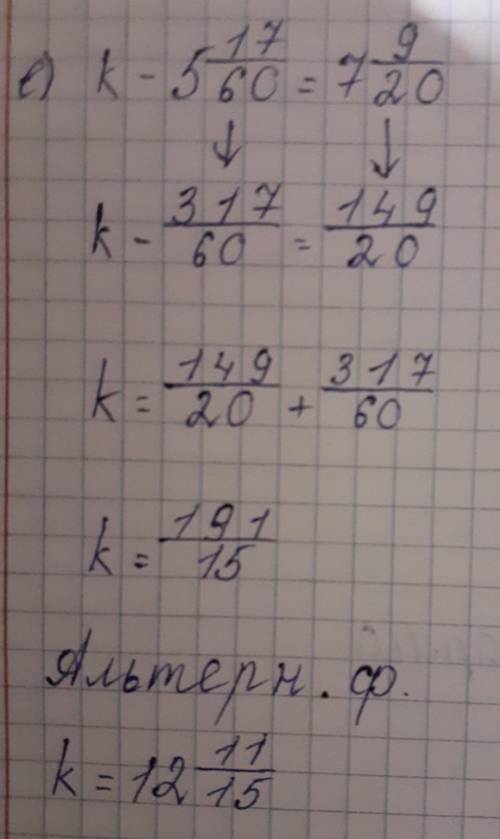 е) k - 5 17/60 = 7 9/20
↓ ↓
k - 317/60 = 149/20
k = 149/20 + 317/60
k = 191/15
Альтерн. ф.
k = 12 11/15